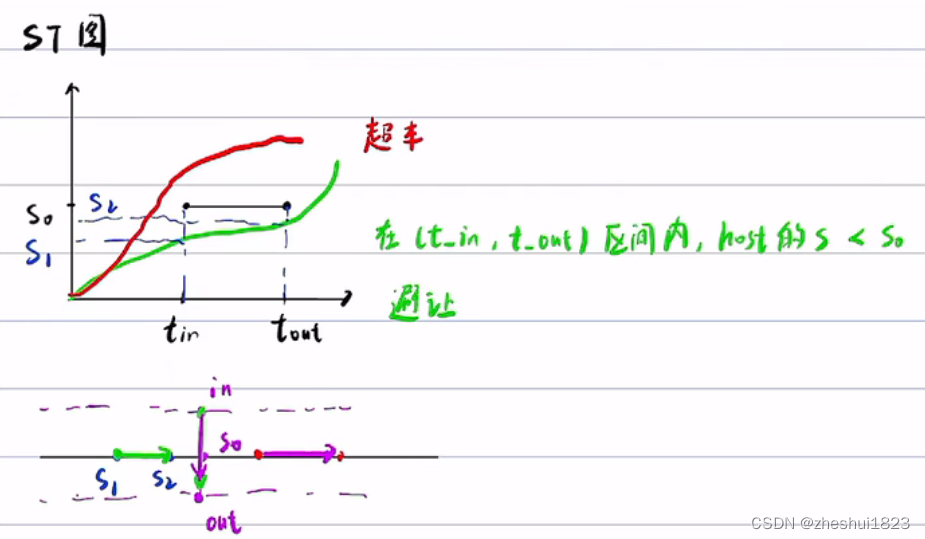 ST图
超车
S₀
S₂
S₁
在(t_in, t_out)区间内, host的s < s₀
避让
tin
tout
in
S₀
S₁
S₂
out
CSDN @zheshui1823